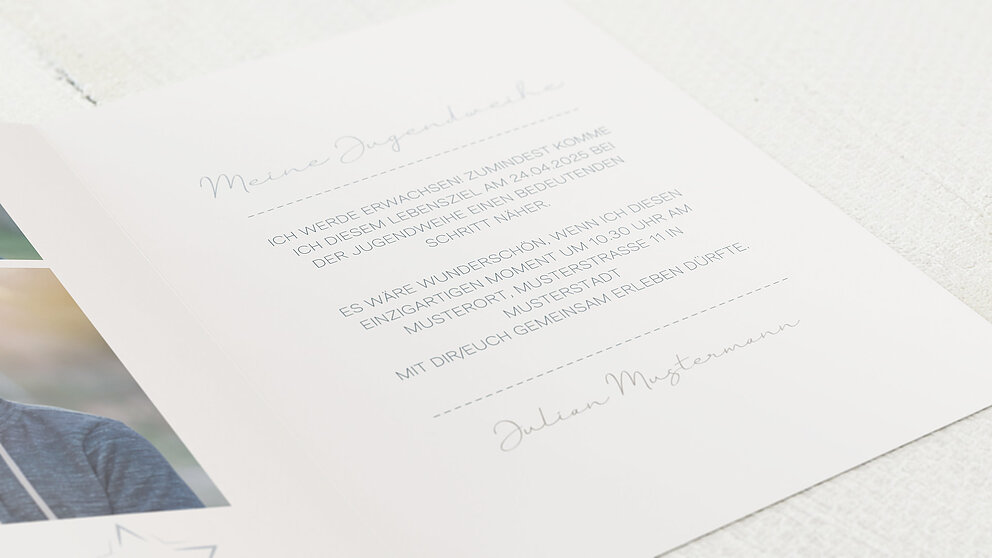 Meine Jugendweihe
ICH WERDE ERWACHSEN! ZUMINDEST KOMME
ICH DIESEM LEBENSZIEL AM 24.04.2025 BEI
DER JUGENDWEIHE EINEN BEDEUTENDEN
SCHRITT NÄHER.
ES WÄRE WUNDERSCHÖN, WENN ICH DIESEN
EINZIGARTIGEN MOMENT UM 10.30 UHR AM
MUSTERORT, MUSTERSTRASSE 11 IN
MUSTERSTADT
MIT DIR/EUCH GEMEINSAM ERLEBEN DÜRFTE.
Julian Mustermann